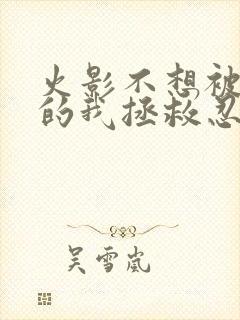 火影不想被
的我拯救忍
吴雪岚